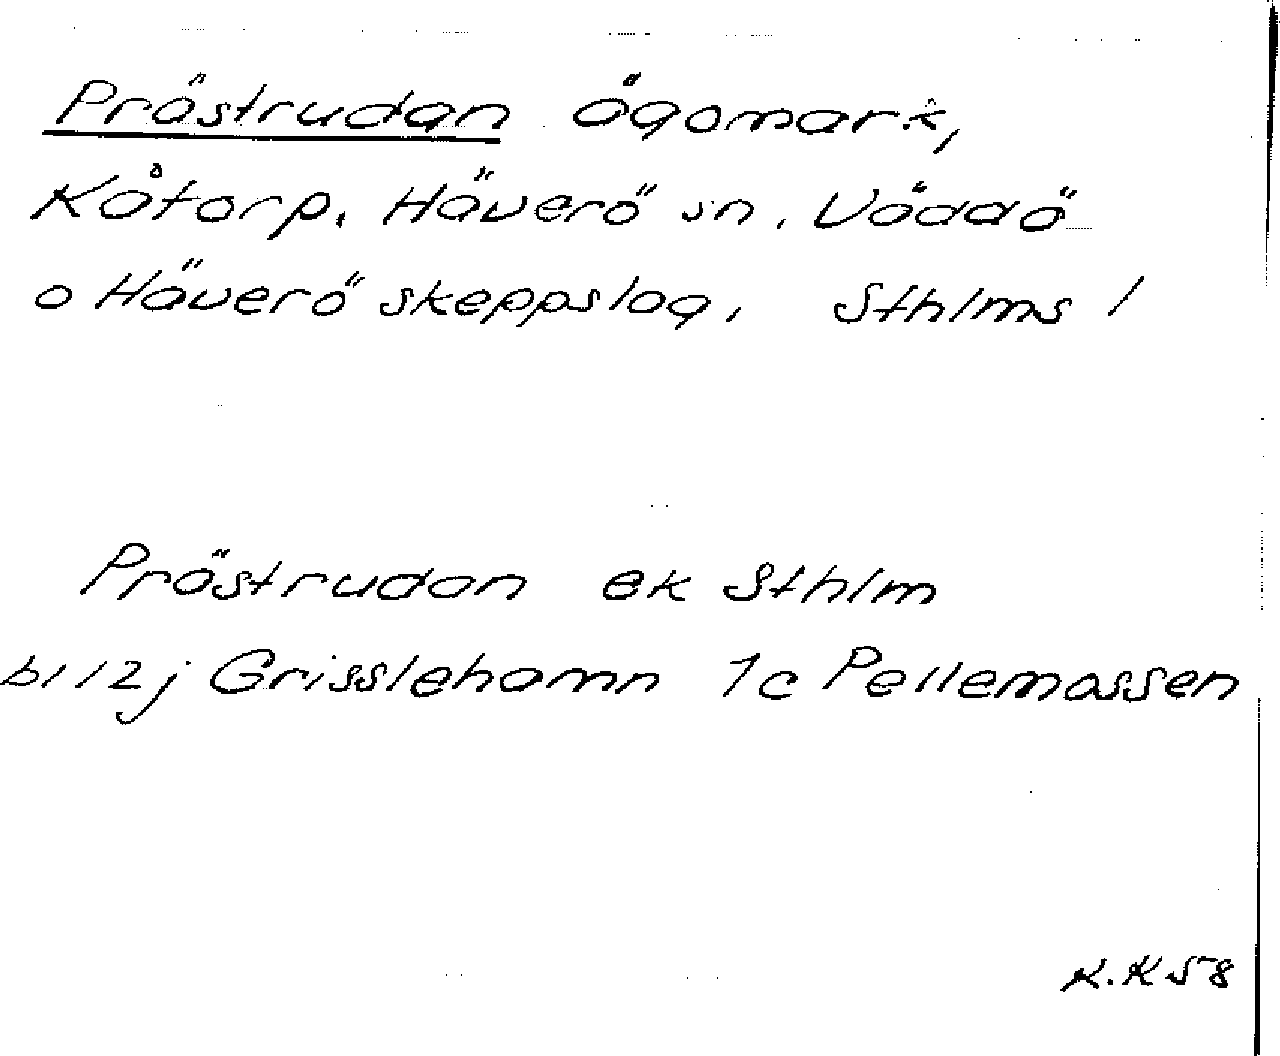 Prästrudan ägomark,
Kåtorp, Häverö sn, Väddö
o Häverö skeppslag, Sthlms l
Prästrudan ek Sthlm
bl 12j Grisslehamn 1c Pellemossen
K.K 58